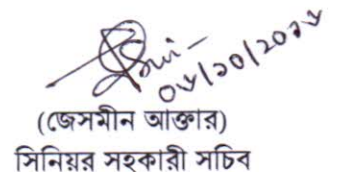 ০৮/১০/২০২৪
(জেসমীন আক্তার)
সিনিয়র সহকারী সচিব